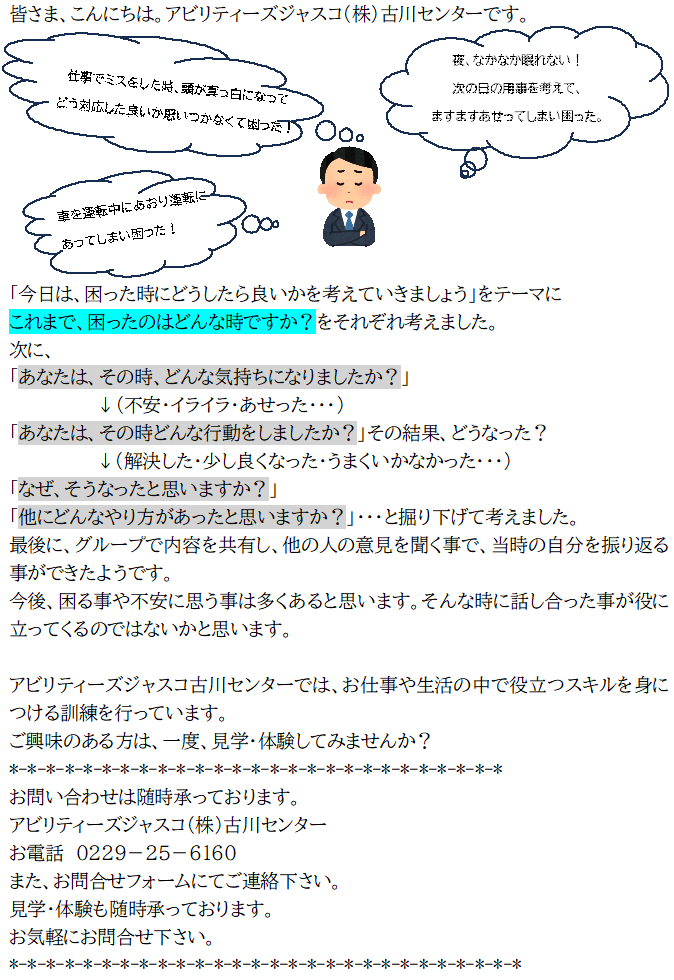 皆さま、こんにちは。アビリティーズジャスコ（株）古川センターです。
仕事でミスをした時、頭が真っ白になって
どう対応した良いか思いつかなくて困った！
夜、なかなか眠れない！
次の日の用事を考えて、
ますますあせってしまい困った。
車を運転中にあおり運転に
あってしまい困った！
「今日は、困った時にどうしたら良いかを考えていきましょう」をテーマに
これまで、困ったのはどんな時ですか？をそれぞれ考えました。
次に、
「あなたは、その時、どんな気持ちになりましたか？」
↓（不安・イライラ・あせった・・・）
「あなたは、その時どんな行動をしましたか？」その結果、どうなった？
↓（解決した・少し良くなった・うまくいかなかった・・・）
「なぜ、そうなったと思いますか？」
「他にどんなやり方があったと思いますか？」・・・と掘り下げて考えました。
最後に、グループで内容を共有し、他の人の意見を聞く事で、当時の自分を振り返る
事ができたようです。
今後、困る事や不安に思う事は多くあると思います。そんな時に話し合った事が役に
立ってくるのではないかと思います。
アビリティーズジャスコ古川センターでは、お仕事や生活の中で役立つスキルを身に
つける訓練を行っています。
ご興味のある方は、一度、見学・体験してみませんか？
*-*-*-*-*-*-*-*-*-*-*-*-*-*-*-*-*-*-*-*-*-*-*-*-*-*-*
お問い合わせは随時承っております。
アビリティーズジャスコ（株）古川センター
お電話　０２２９－２５－６１６０
また、お問合せフォームにてご連絡下さい。
見学・体験も随時承っております。
お気軽にお問合せ下さい。
*-*-*-*-*-*-*-*-*-*-*-*-*-*-*-*-*-*-*-*-*-*-*-*-*-*-*-*